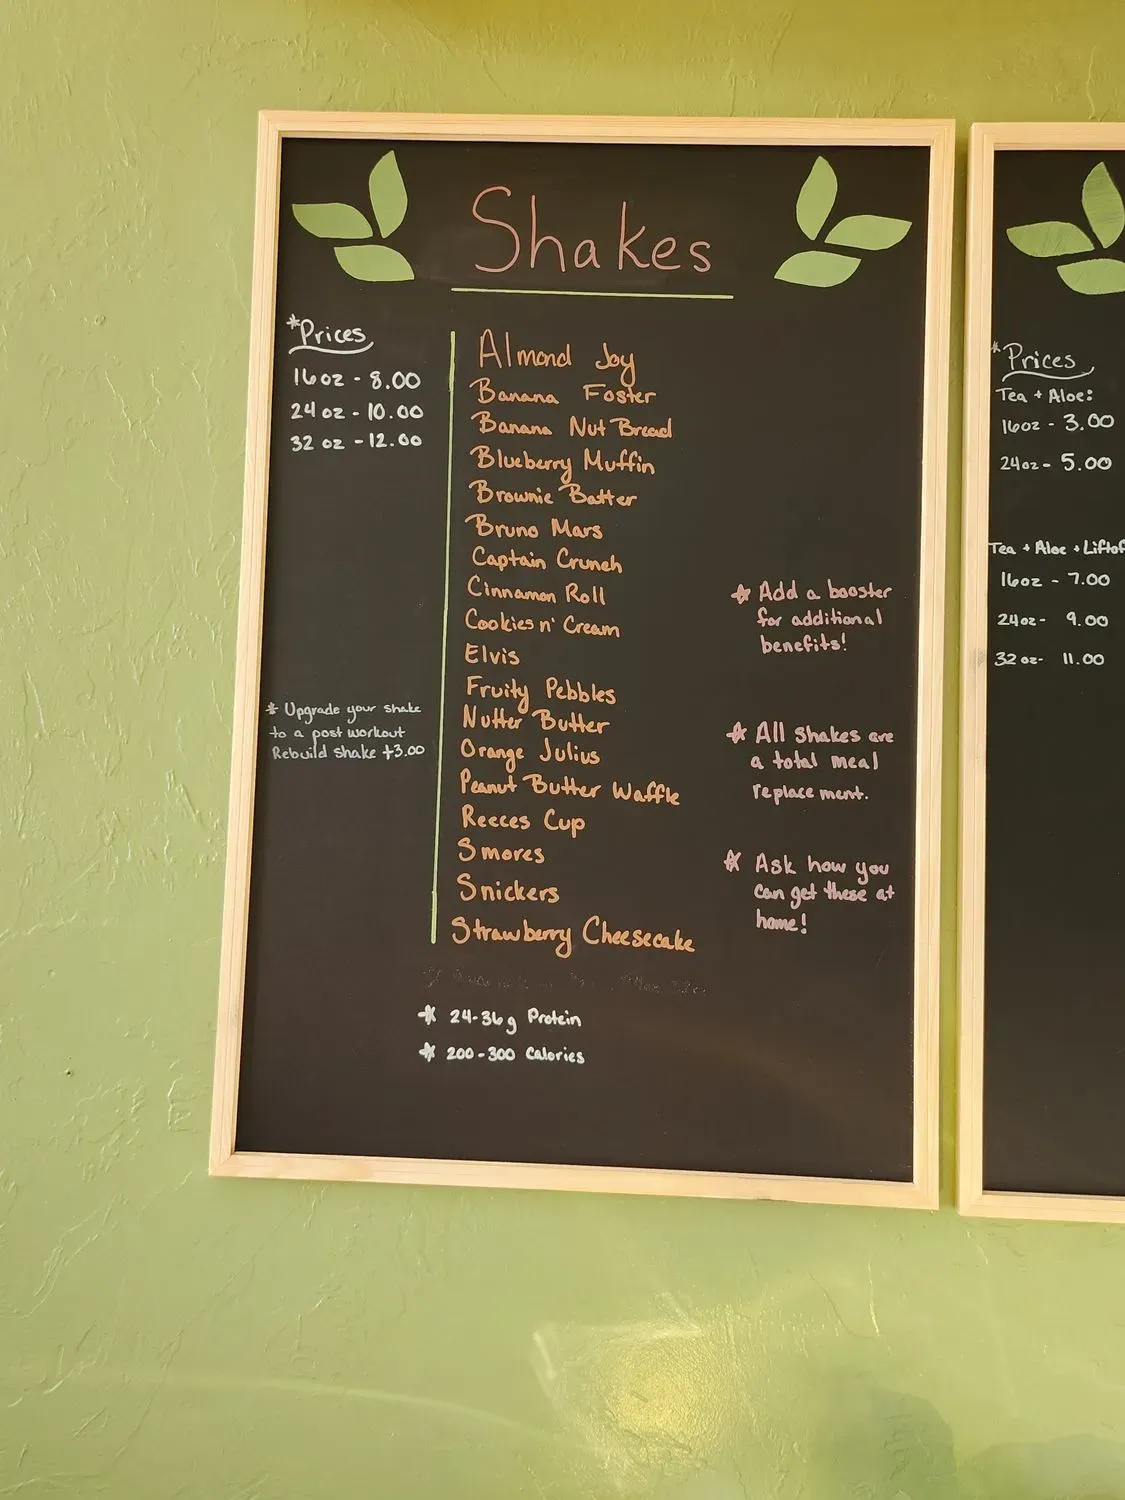 Shakes
*Prices
16oz - 8.00
24oz - 10.00
32 oz - 12.00
* Upgrade your shake
to a post workout
Rebuild shake +3.00
Almond Joy
Banana Foster
Banana Nut Bread
Blueberry Muffin
Brownie Batter
Bruno Mars
Captain Crunch
Cinnamon Roll
Cookies n' Cream
Elvis
Fruity Pebbles
Nutter Butter
Orange Julius
Peanut Butter Waffle
Reeces Cup
Smores
Snickers
Strawberry Cheesecake
* 24-36g Protein
* 200-300 Calories
* Add a booster
for additional
benefits!
* All shakes are
a total meal
replacement.
* Ask how you
can get these at
home!
*Prices
Tea + Aloe:
16oz - 3.00
24oz - 5.00
Tea + Aloe + Liftof
16oz - 7.00
24oz - 9.00
32oz - 11.00